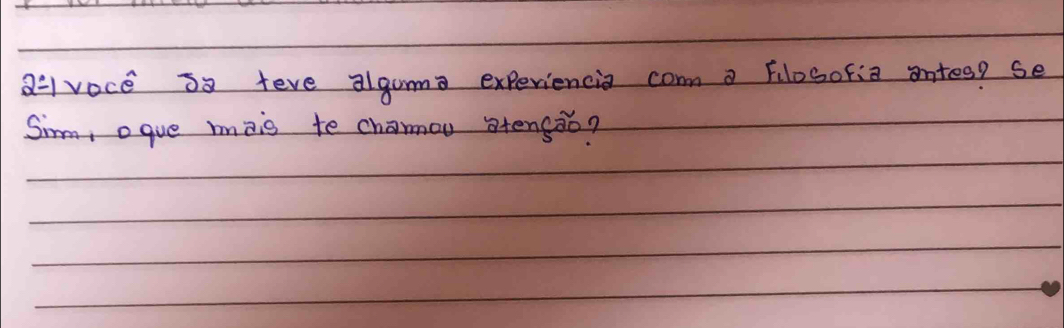 2=) você Ja teve alguma experiencia com a Filosofia antes? Se
Sim, o que mais te chamou atenção?